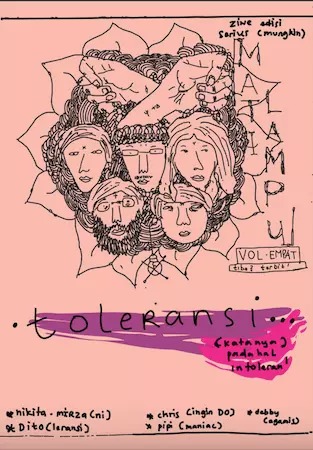 zine edisi
serius (mungkin)
MATI
LAMPU
VOL. EMPAT
tiba² terbit!
. toleransi...
(katanya)
padahal
intoleran!
* nikita - mirza (ni)
* Dito (leransi)
* chris (ingin DO)
* pipi (maniac)
* debby
(agamis)